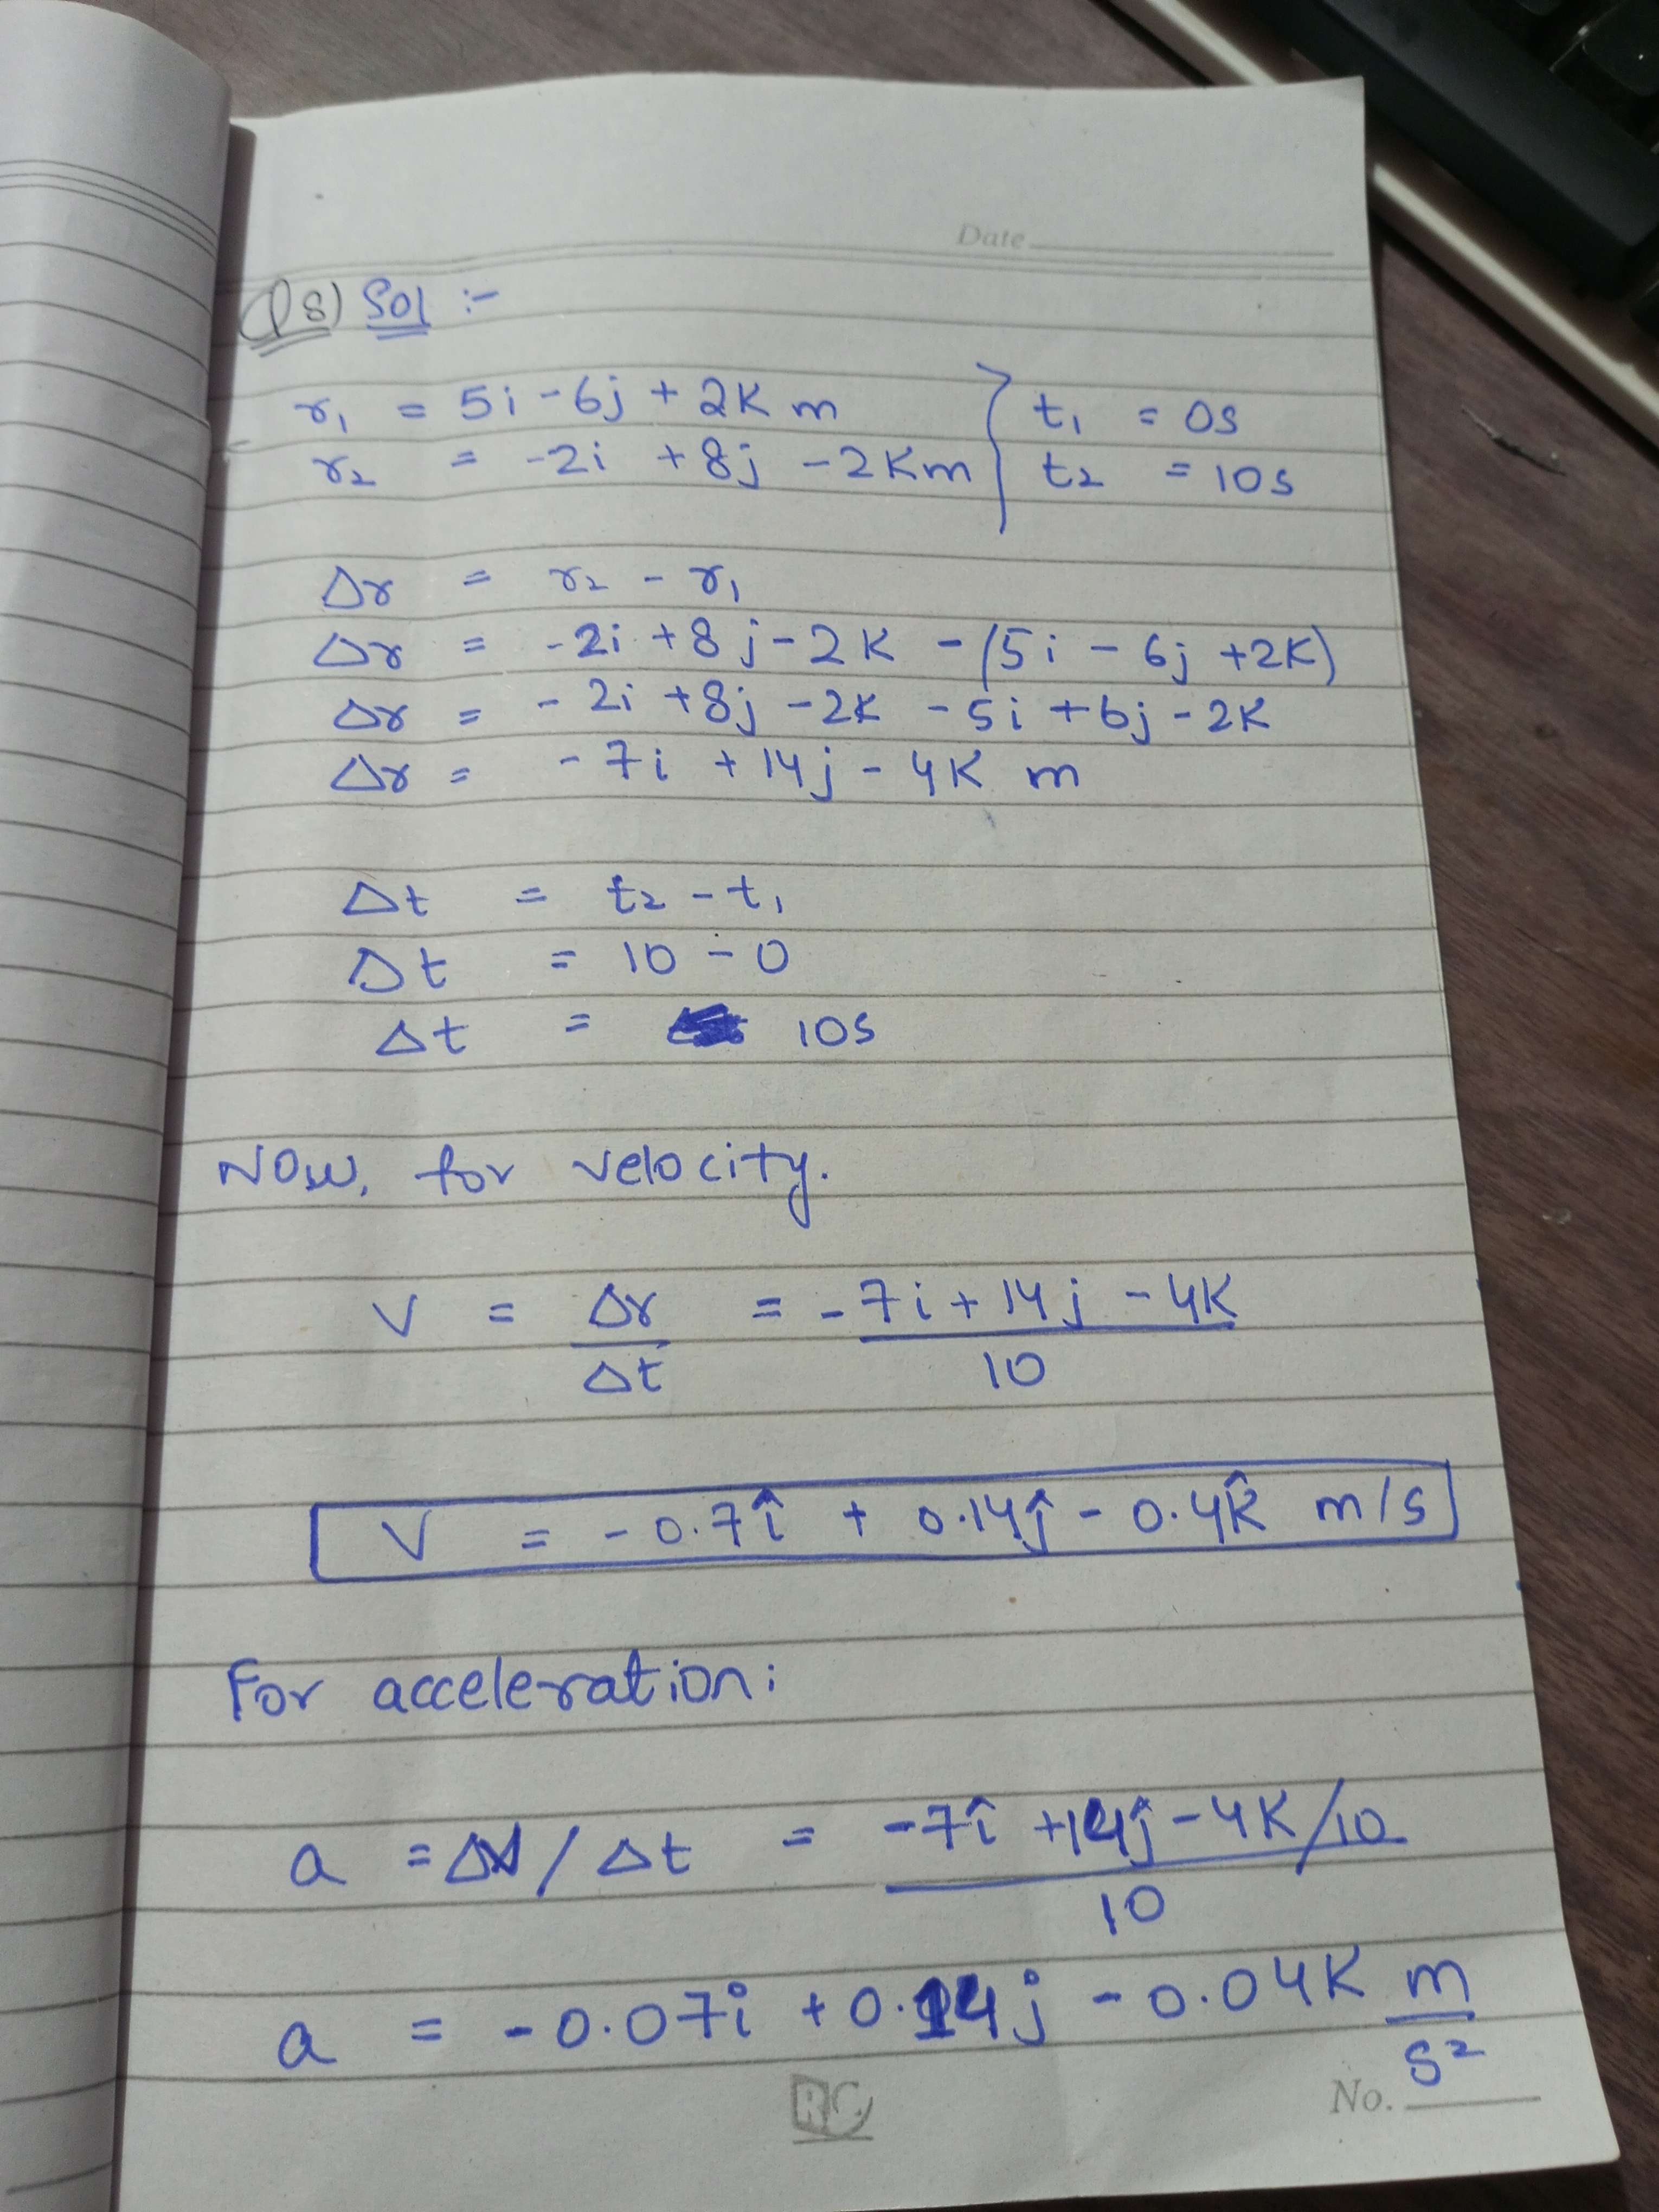 Date
Q8) Sol :-
r₁ = 5i - 6j + 2k m } t₁ = 0s
r₂ = -2i + 8j - 2km } t₂ = 10s
Δr = r₂ - r₁
Δr = -2i + 8j - 2k - (5i - 6j + 2k)
Δr = -2i + 8j - 2k - 5i + 6j - 2k
Δr = -7i + 14j - 4k m
Δt = t₂ - t₁
Δt = 10 - 0
Δt = 10s
Now, for velocity.
V = Δr/Δt = -7i + 14j - 4k / 10
V = -0.7î + 0.14ĵ - 0.4k̂ m/s
For acceleration:
a = ΔV / Δt = -7î + 14ĵ - 4k/10 / 10
a = -0.07i + 0.14j - 0.04k m/s²
RC
No.